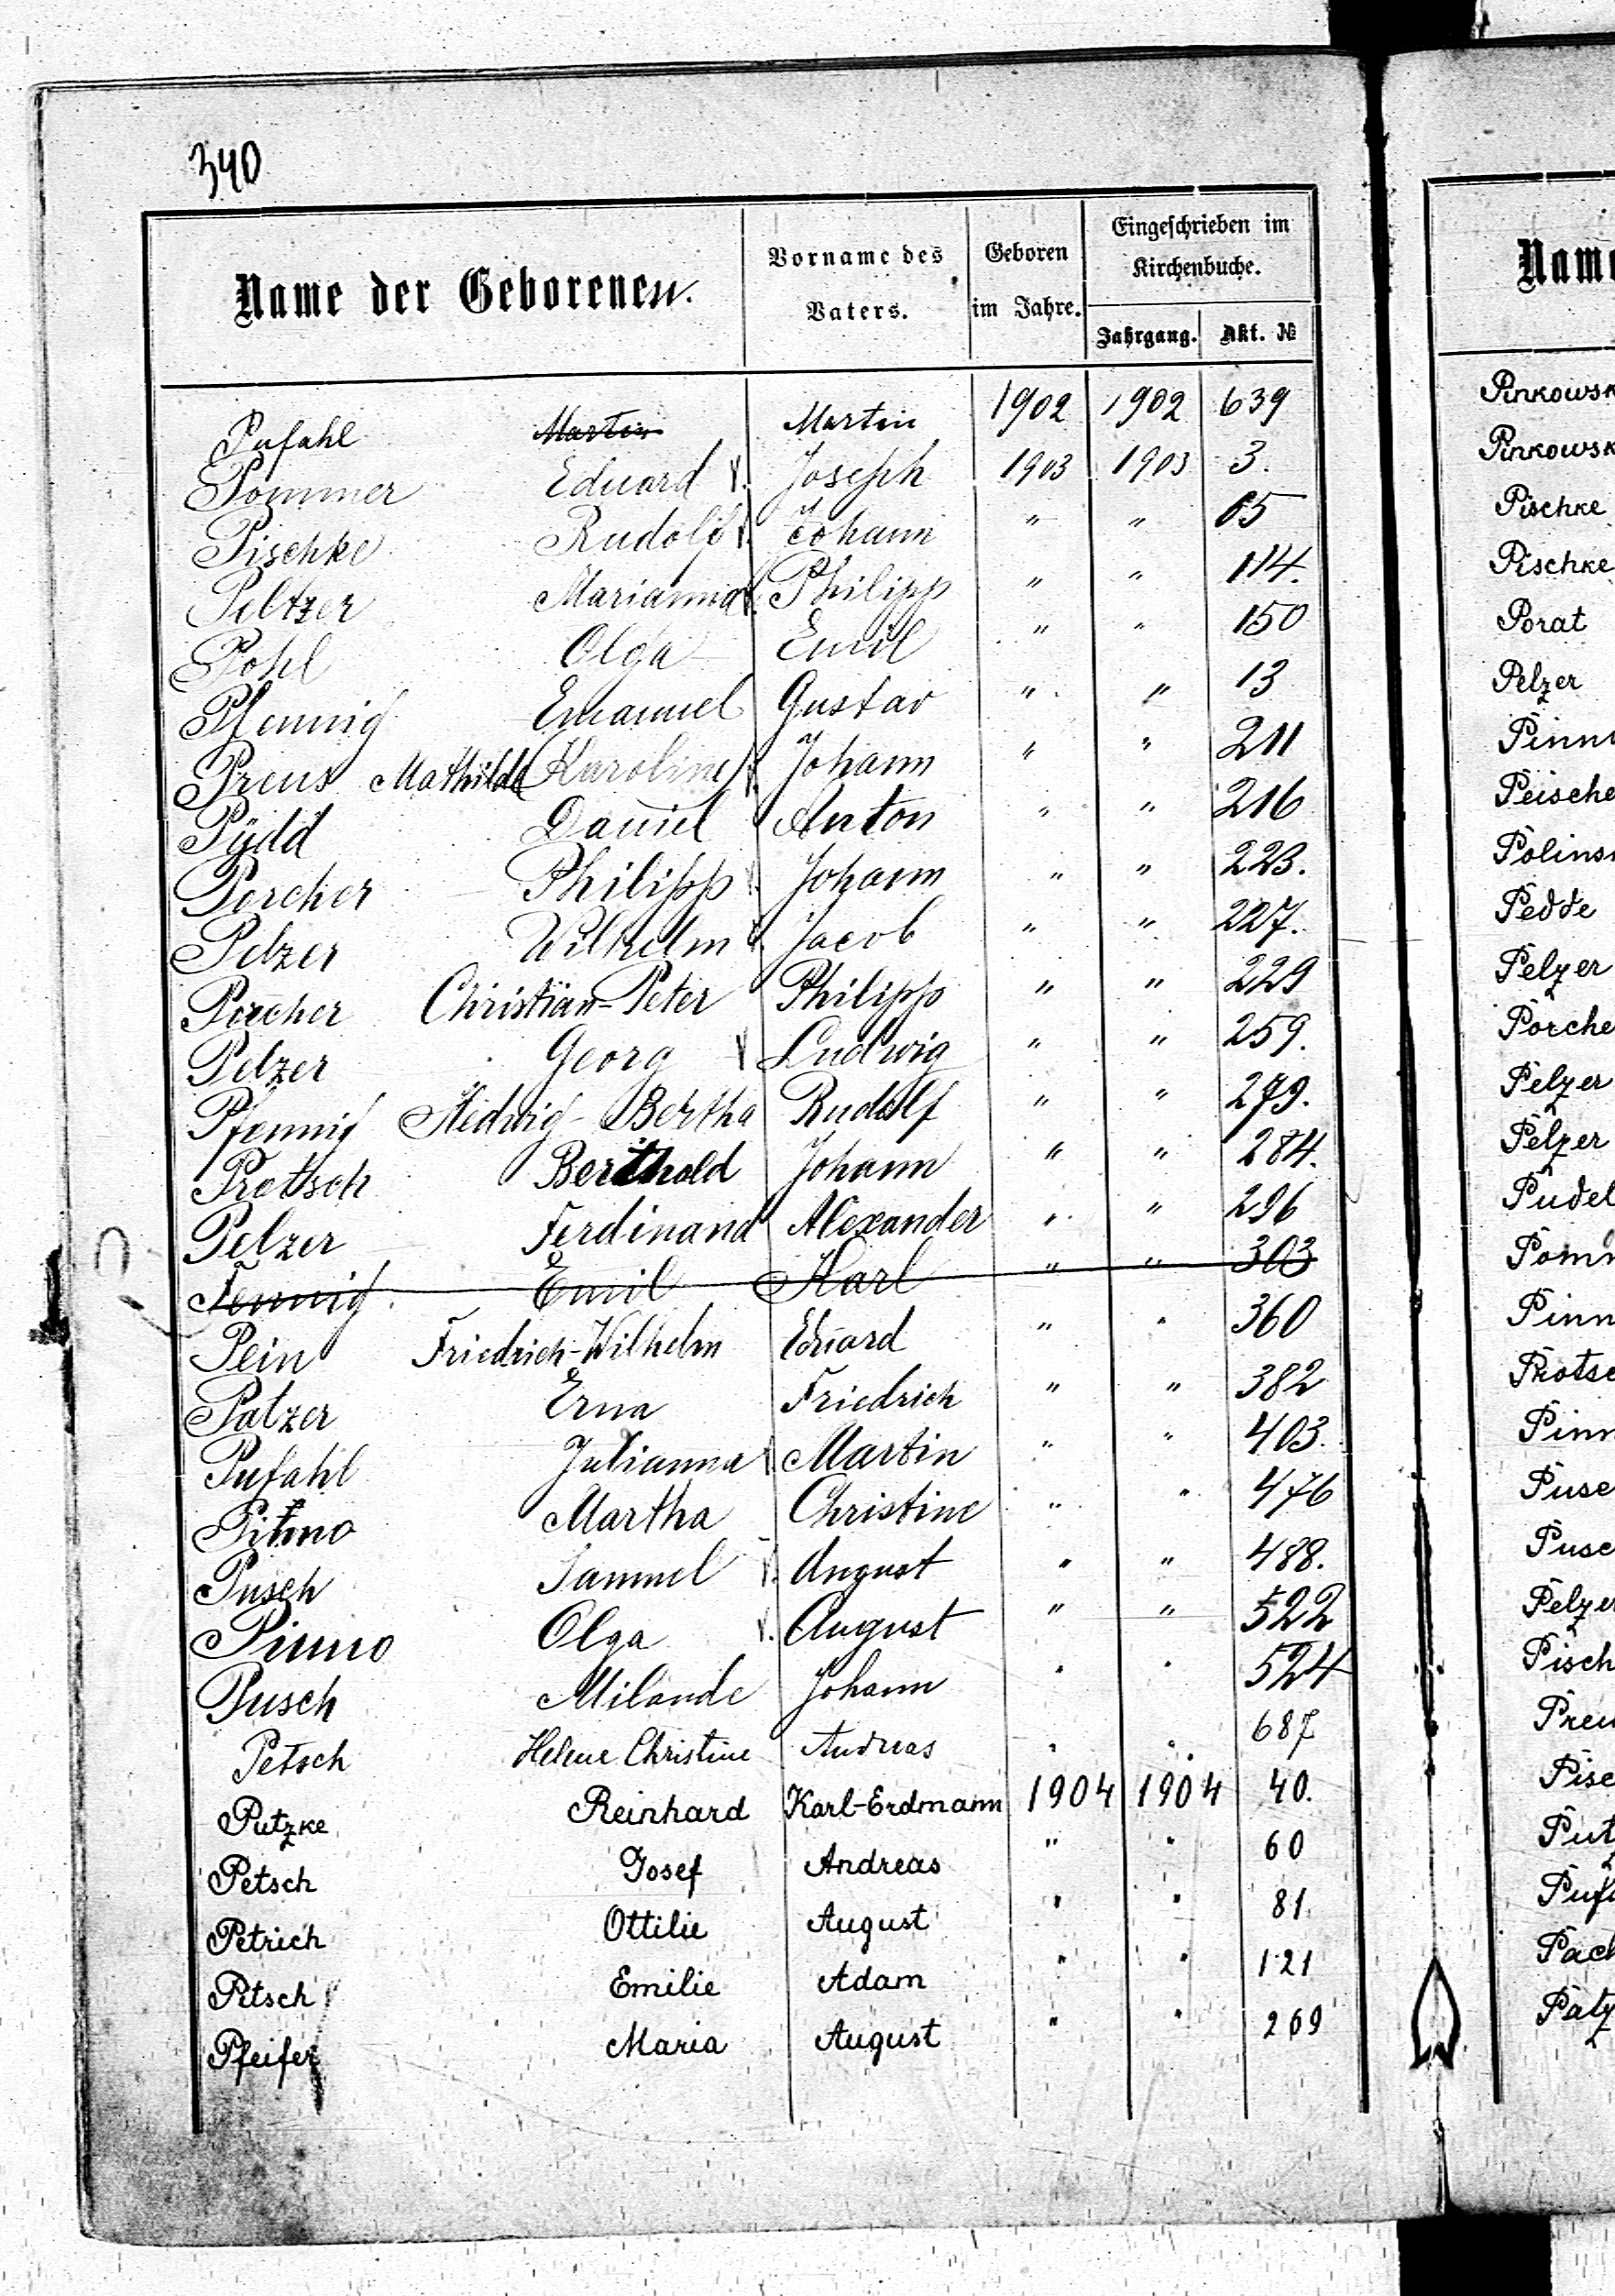 340
Name der Geborenen. Vorname des Vaters. Geboren im Jahre. Eingeschrieben im Kirchenbuche. Jahrgang. Akt. №
Pufahl Martin Martin 1902 1902 639
Pommer Eduard Joseph 1903 1903 3.
Pischke Rudolf Johann " " 65
Peltzer Marianna Philipp " " 114.
Pohl Olga Emil " " 150
Pfennig Emanuel Gustav " " 13
Preus Mathilde Karoline Johann " " 211
Püdd Daniel Anton " " 216
Porcher Philipp Johann " " 223.
Pelzer Wilhelm Jacob " " 227.
Porcher Christian-Peter Philipp " " 229
Pelzer Georg Ludwig " " 259.
Pfennig Hedwig-Bertha Rudolf " " 279.
Protsch Berthold Johann " " 284.
Pelzer Ferdinand Alexander " " 296
Fennig Emil Karl " " 303
Pein Friedrich-Wilhelm Eduard " " 360
Patzer Erna Friedrich " " 382
Pufahl Julianna Martin " " 403.
Martha Christine " " 476
Pusch Samuel August " " 488.
Pinno Olga August " " 522
Pusch Milande Johann " " 524
Petsch Helene Christine Andreas " " 687
Putzke Reinhard Karl-Erdmann 1904 1904 40.
Petsch Josef Andreas " " 60
Petrich Ottilie August " " 81
Petsch Emilie Adam " " 121
Pfeifer Maria August " " 269
Name
Pinkowsk
Pinkowsk
Pischke
Pischke
Porat
Pelzer
Pinn
Peische
Polins
Pedde
Pelzer
Porche
Pelzer
Pelzer
Pudel
Pomm
Pinn
Protse
Pinn
Puse
Pusc
Pelzer
Pisch
Preu
Pisc
Put
Pufa
Pach
Patz